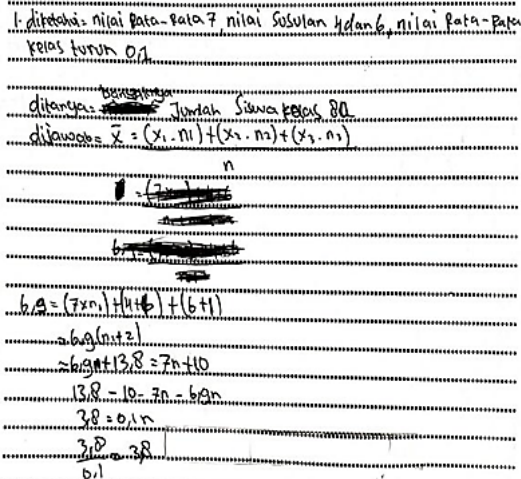 1. diketahui = nilai Rata-Rata 7, nilai Susulan 4 dan 6, nilai Rata-Rata
kelas turun 0,1
ditanya = banyaknya Jumlah Siswa kelas 8A
dijawab = x̄ = (x₁ . n₁) + (x₂ . n₂) + (x₃ . n₃)
n
6,9 = (7xn₁) + (4+6) + (6+1)
= 6,9(n₁+2)
= 6,9n + 13,8 = 7n + 10
13,8 - 10 - 7n - 6,9n
3,8 = 0,1n
3,8 = 38
0,1